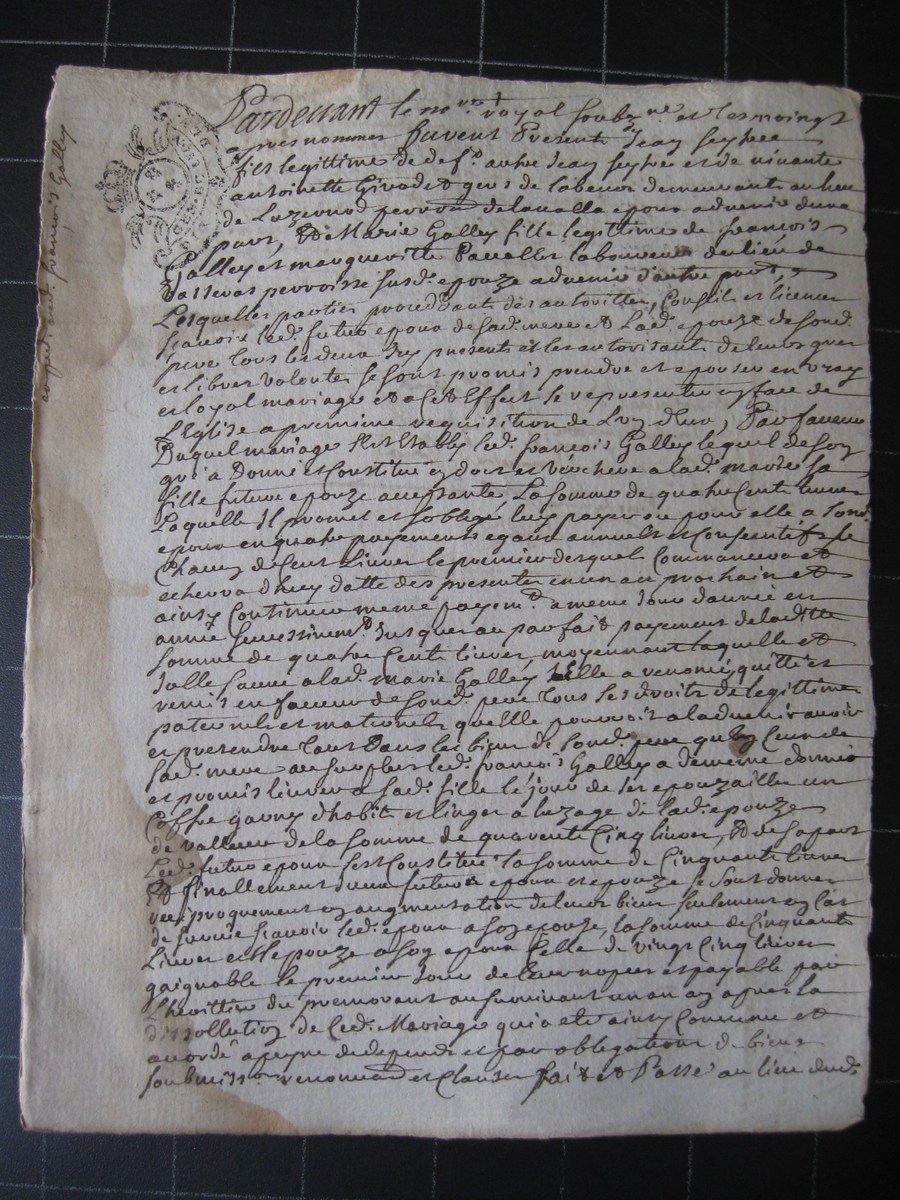 Pardevant le no.re royal soubz.né et tesmoings
apres nommes furent Present Jean Seyhve
fils legittime de def.t autre Jean seyhve et de vivante
antoinette Givodet gers de labeur demeurants au lieu
de Luzernod perroisse de lavalla epoux advenir d'une
part, Et Marie Galley fille legitime de françois
Galley et margueritte Pacallet laboureur du lieu de
perroisse susd. epouze advenir d'autre part,
Lesquelles parties procedants des autorittes, Conseils et licences
sçavoir led. futur epoux de sad. mere et Lad. epouze de sond.
pere tous les deux Icy presents et les autorisants de leurs grés
et libres volontes se sont promis prendre et epouser en vray
et loyal mariage et a cet Effect se representer en face de
L'Eglise a premiere requisition de Luy d'eux, Par faveur
Duquel mariage s'est Etably led. françois Galley lequel de soy
qui a Donné et Constitué en dot et verchere a lad. marie sa
fille future epouze acceptante La somme de quatre Cents livres
Laquelle Il promet et soblige luy payer ou pour elle a sond.
epoux en quatre payements egaux annuels et consecutifs de
Chacun de Cent Livres le premier desquel Commancera et
echerra d'huy datte des presentes en un an prochain et
ainsy Continuer meme payem.t a meme Jour d'année en
année successivem.t Jusques au parfait payement de laditte
somme de quatre Cents livres, moyennant laquelle et
Jcelle sauve a lad. marie Galley Elle a renoncé quitté et
remis en faveur de sond. pere tous ses droits de legittime
paternels et maternels quelle pouvoit a ladvenir avoir
et pretendre tant dans les biens de sond. pere qu'en Ceux de
sad. mere au surplus led. françois Galley a de meme donné
et promis livrer a sad. fille le jour de ses epouzailles un
Coffre garny d'habits et linges a luzage de lad. epouze
de valleur de la somme de quarente Cinq livres, Et de sa part
Led. futur epoux sest Constitué la somme de Cinquante livres
Et finallement futur epoux et epouze se sont donner
reciproquement en augmentation de leurs biens seulement en Cas
de survie sçavoir led. epoux a son epouze, la somme de Cinquante
Livres et lepouze a son epoux Celle de vingt Cinq livres
gaignable le premier Jour de leurs nopces et payable par
lheritier du premourant au survivant un an apres la
dissollution de Ced. Mariage qui a eté ainsy Convenu et
accordé a peyne de depends et par obligations de biens
soubmissions renonciaons et Clauses fait et Passé au lieu dud.
françois Galley